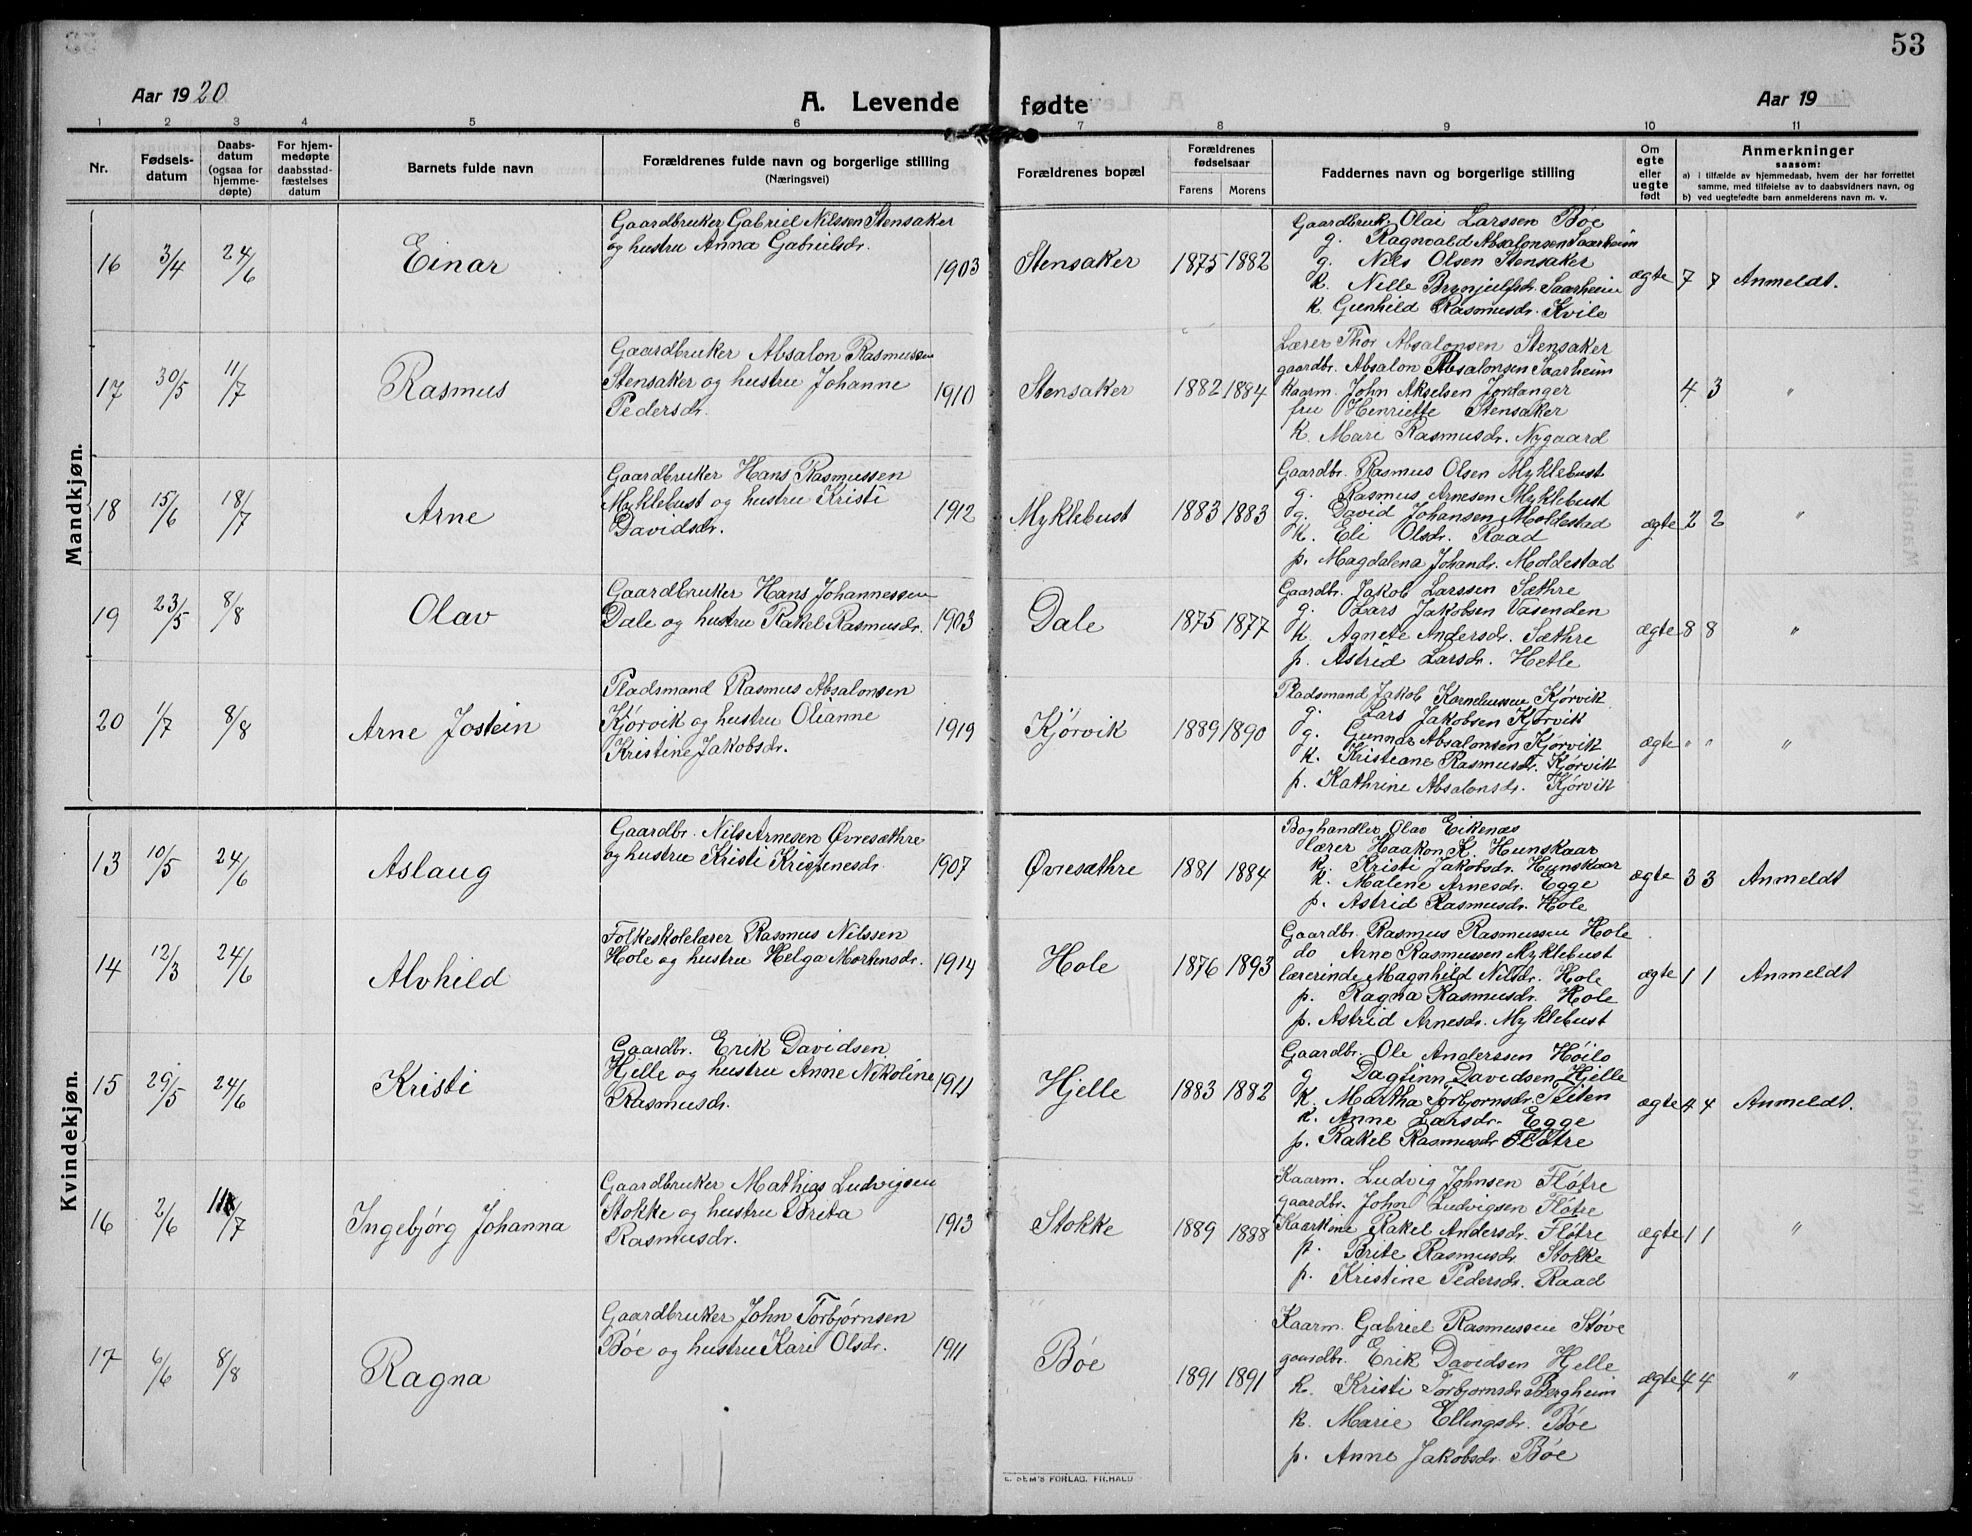 Aar 1920
A. Levende fødte
Aar 19
53
1 2 3 4 5 6 7 8 9 10 11
Nr.
Fødsels-
datum
Daabs-
datum
(ogsaa for
hjemme-
døpte)
For hjem-
medøpte
daabsstad-
fæstelses
datum
Barnets fulde navn
Forældrenes fulde navn og borgerlige stilling
(Næringsvei)
Forældrenes bopæl
Forældrenes
fødselsaar
Farens Morens
Faddernes navn og borgerlige stilling
Om
egte
eller
uegte
født
Anmerkninger
saasom:
a) i tilfælde av hjemmedaab, hvem der har forrettet
samme, med tilføielse av to daabsvidners navn, og
b) ved uegtefødte barn anmelderens navn m. v.
Mandkjøn.
16 3/4 24/6 Einar
Gaardbruker Gabriel Nilssen Stensaker
og hustru Anna Gabrielsdr.
1903 Stensaker 1875 1882
Gaardbruk. Olai Larssen Bøe
g. Ragnvald Absalonsen Saarheim
g. Nils Olsen Stensaker
k. Nille Brynjulfsdr. Saarheim
k. Gunhild Rasmusdr. Kvile
ægte 7 7 Anmeldt.
17 30/5 11/7 Rasmus
Gaardbruker Absalon Rasmussen
Stensaker og hustru Johanne
Pedersdr.
1910 Stensaker 1882 1884
Lærer Thor Absalonsen Stensaker
gaardbr. Absalon Absalonsen Saarheim
kaarm. John Akselsen Jordanger
fru Henriette Stensaker
k. Mari Rasmusdr. Nygaard
4 3 "
18 15/6 18/7 Arne
Gaardbruker Hans Rasmussen
Myklebust og hustru Kristi
Davidsdr.
1912 Myklebust 1883 1883
Gaardbr. Rasmus Olsen Myklebust
g. Rasmus Arnesen Myklebust
g. David Johansen Moldestad
k. Eli Olsdr. Raad
p. Magdalena Johandr. Moldestad
ægte 2 2 "
19 23/5 8/8 Olav
Gaardbruker Hans Johannessen
Dale og hustru Rakel Rasmusdr.
1903 Dale 1875 1877
Gaardbr. Jakob Larssen Sæthre
g. Lars Jakobsen Vasenden
k. Agnete Andersdr. Sæthre
p. Astrid Larsdr. Hetle
ægte 8 8 "
20 1/7 8/8 Arne Jostein
Pladsmand Rasmus Absalonsen
Kjørvik og hustru Olianne
Kristine Jakobsdr.
1919 Kjørvik 1889 1890
Pladsmand Jakob Korneliussen Kjørvik
g. Lars Jakobsen Kjørvik
g. Gunnar Absalonsen Kjørvik
k. Kristiane Rasmusdr. Kjørvik
p. Kathrine Absalonsdr. Kjørvik
ægte " " "
Kvindekjøn.
13 10/5 24/6 Aslaug
Gaardbr. Nils Arnesen Øvresæthre
og hustru Kristi Krispinesdr.
1907 Øvresæthre 1881 1884
Boghandler Olav Eikenæs
lærer Haakon K. Hunskaar
k. Kristi Jakobsdr. Hunskaar
k. Malene Arnesdr. Egge
p. Astrid Rasmusdr. Hole
ægte 3 3 Anmeldt
14 12/3 24/6 Alvhild
Folkeskolelærer Rasmus Nilssen
Hole og hustru Helga Mortensdr.
1914 Hole 1876 1893
Gaardbr. Rasmus Rasmussen Hole
do Arne Rasmussen Myklebust
lærerinde Magnhild Nilsdr. Hole
p. Ragna Rasmusdr. Hole
p. Astrid Arnesdr. Myklebust
ægte 1 1 Anmeldt
15 29/5 24/6 Kristi
Gaardbr. Erik Davidsen
Hjelle og hustru Anne Nikoline
Rasmusdr.
1911 Hjelle 1883 1882
Gaardbr. Ole Anderssen Høilo
g Dagfinn Davidsen Hjelle
k. Martha Torbjørnsdr. Teiten
k. Anne Larsdr. Egge
p. Rakel Rasmusdr. Fløtre
ægte 4 4 Anmeldt.
16 2/6 11/7 Ingebjørg Johanna
Gaardbruker Mathias Ludvigsen
Stokke og hustru Brita
Rasmusdr.
1913 Stokke 1889 1888
Kaarm. Ludvig Johnsen Fløtre
gaardbr. John Ludvigsen Fløtre
Kaarkone Rakel Andersdr. Fløtre
p. Brite Rasmusdr Stokke
p. Kristine Pedersdr. Raad
ægte 1 1 "
17 6/6 8/8 Ragna
Gaardbruker John Torbjørnsen
Bøe og hustru Kari Olsdr.
1911 Bøe 1891 1891
Kaarm. Gabriel Rasmussen Støve
gaardbr. Erik Davidsen Hjelle
k. Kristi Torbjørnsdr Bergheim
k. Marie Ellingsdr. Bøe
p. Anne Jakobsdr. Bøe
ægte 4 4 "
SEM'S FORLAG. FR.HALD